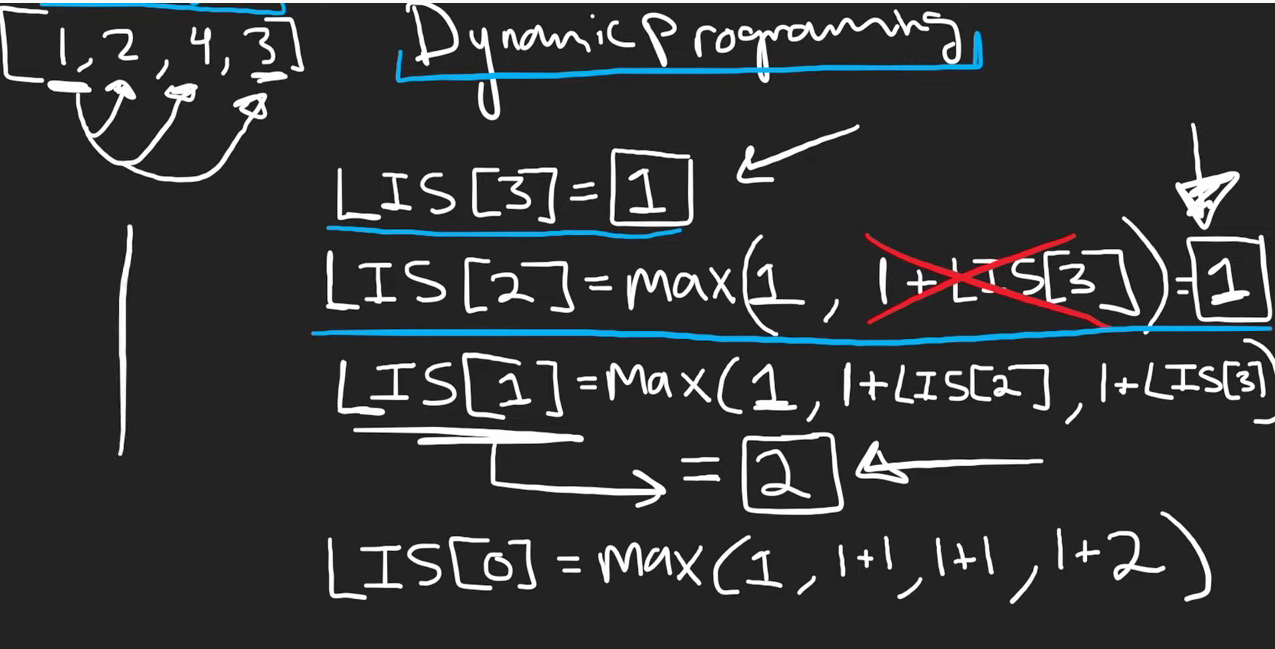 [1, 2, 4, 3]
Dynamic Programing
LIS[3] = 1
LIS[2] = max(1, 1+LIS[3]) = 1
LIS[1] = max(1, 1+LIS[2], 1+LIS[3])
= 2
LIS[0] = max(1, 1+1, 1+1, 1+2)